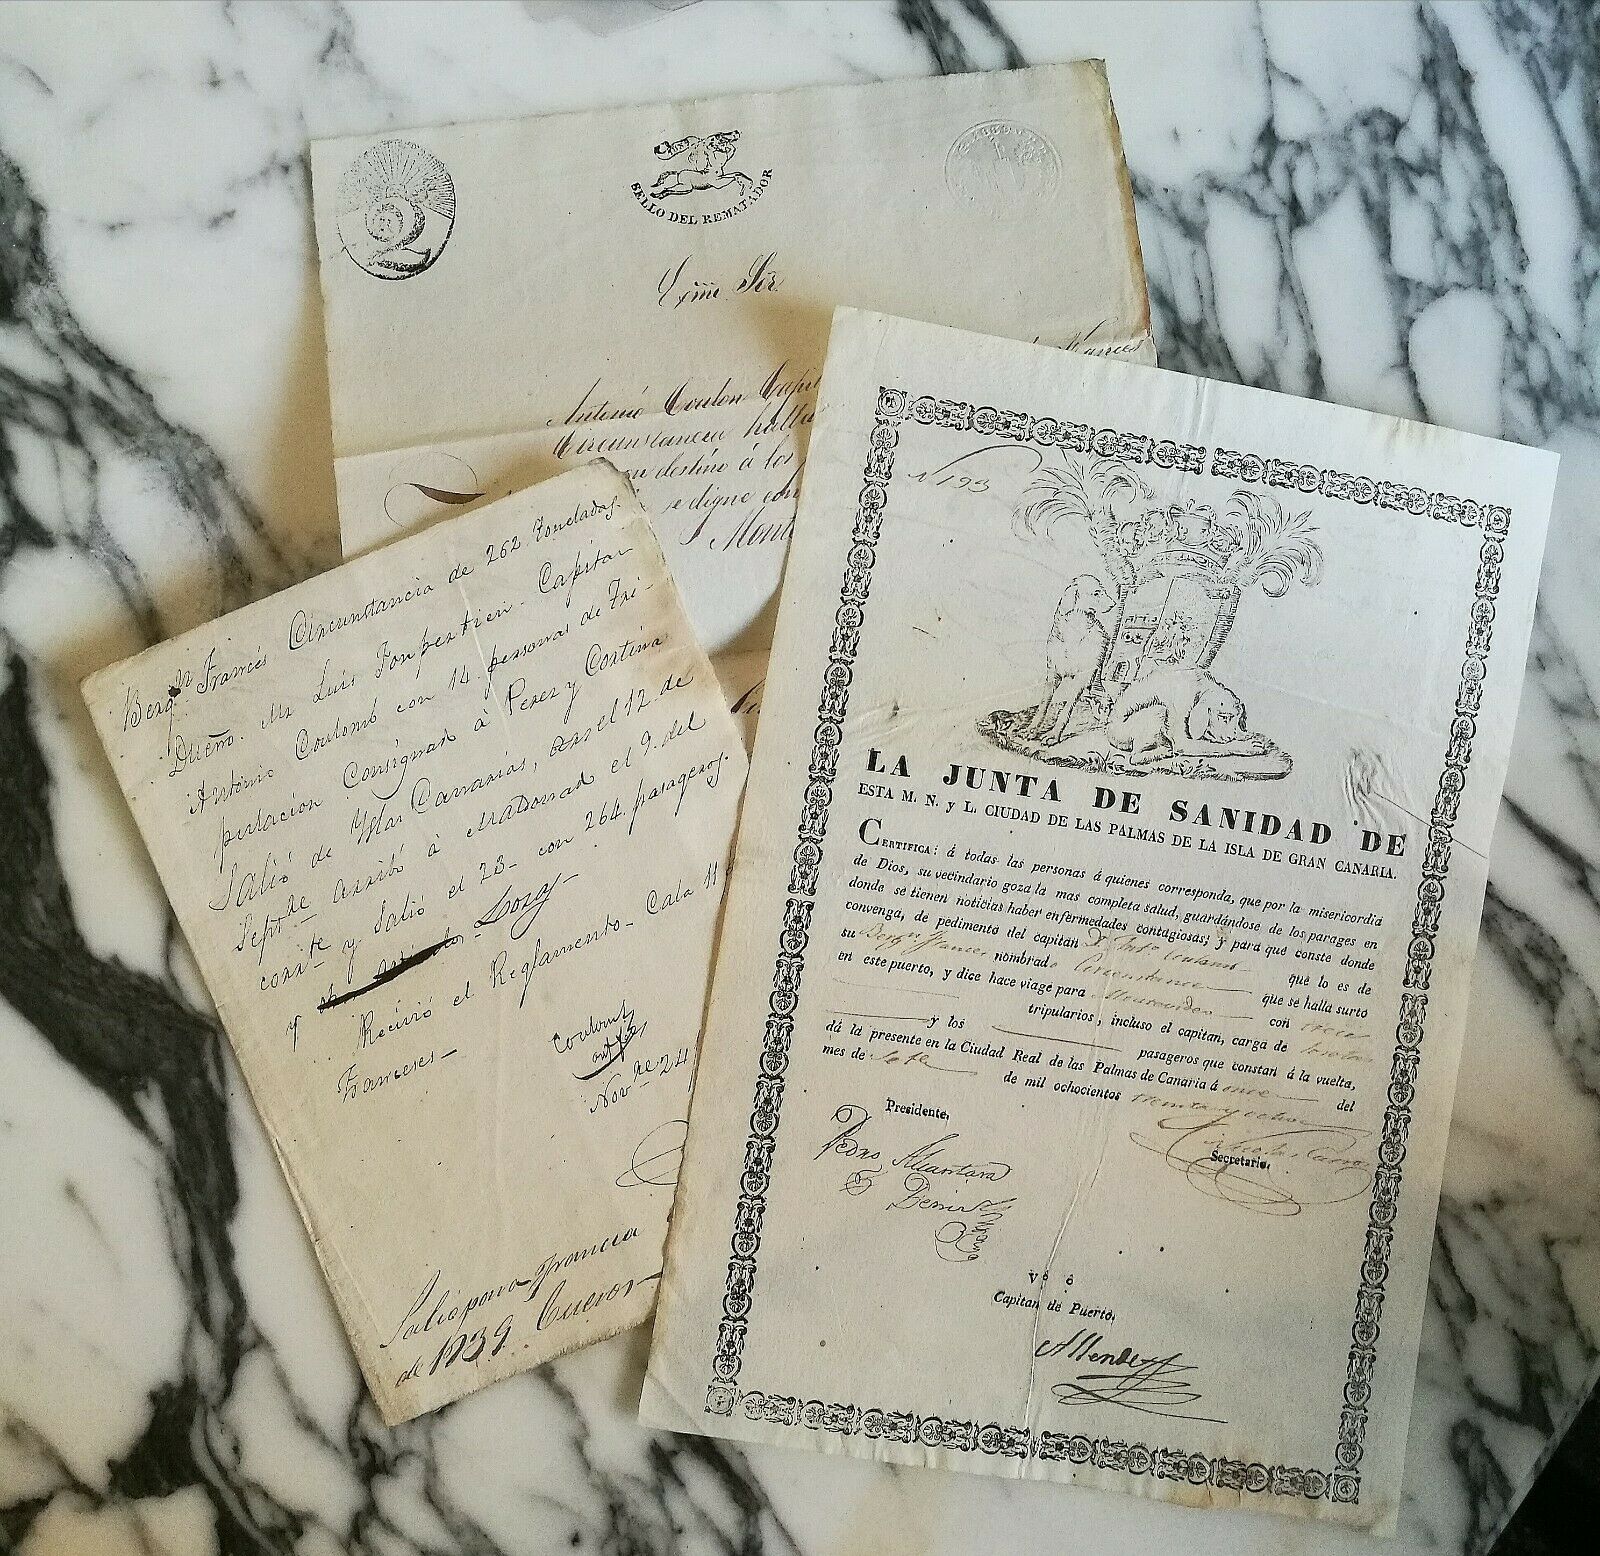 SELLO DEL REMATADOR
Exmo Sor
Antonio Coulon Capi
Circunstancia halla
con destino á los
se digne con
Mont
Frances
Bergn Francés Circunstancia de 262 Toneladas.
Dueño. Mr Luis Capitan
Antonio Coulomb con 14. personas de Tri-
pulacion Consignad à Perez y Cortina
Salió de Yslas Canarias, el 12. de
Septre arribó à Maldonad el 9. del
corrte y salió el 23- con 264. pasageros.
y dos-
Recivió el Reglamento- Cala 11
Franceses-
Coulomb
Novre 24
Salió para Francia
de 1839
N 193
LA JUNTA DE SANIDAD DE
ESTA M. N. y L. CIUDAD DE LAS PALMAS DE LA ISLA DE GRAN CANARIA.
CERTIFICA: á todas las personas á quienes corresponda, que por la misericordia
de Dios, su vecindario goza la mas completa salud, guardándose de los parages en
donde se tienen noticias haber enfermedades contagiosas; y para que conste donde
convenga, de pedimento del capitan Dn Anto Coulomb que lo es de
su Bergn frances nombrado Circunstancia que se halla surto
en este puerto, y dice hace viage para Montevideo con trece
tripularios, incluso el capitan, carga de
y los pasageros que constan á la vuelta,
dá la presente en la Ciudad Real de las Palmas de Canaria á once del
mes de Sete de mil ochocientos treinta y ocho
Presidente,
Pedro Alcantara
Deniz
Secretario,
Vo ó
Capitan de Puerto,
Allende